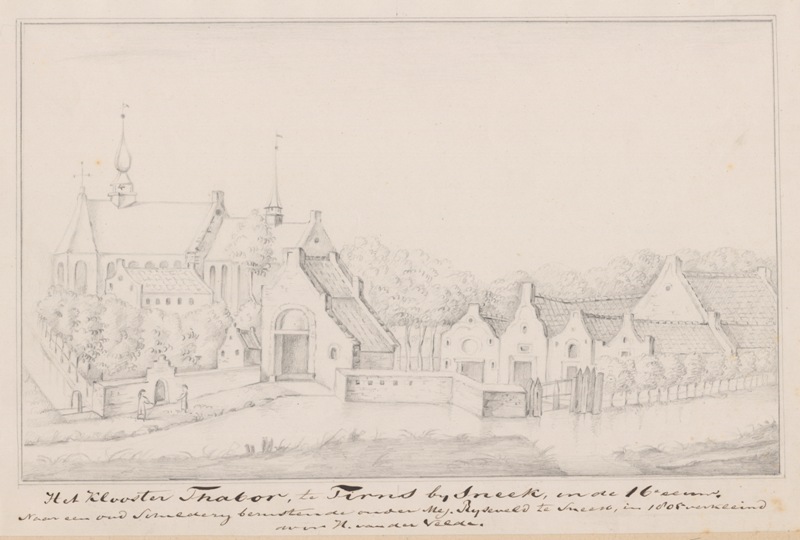 Het Klooster Thabor, te Tirns by Sneek, in de 16e eeuw.
Naar een oud Schildery berustende onder Mej. Ryseveld te Sneek, in 1808 verkleind
door H. van der Velde.